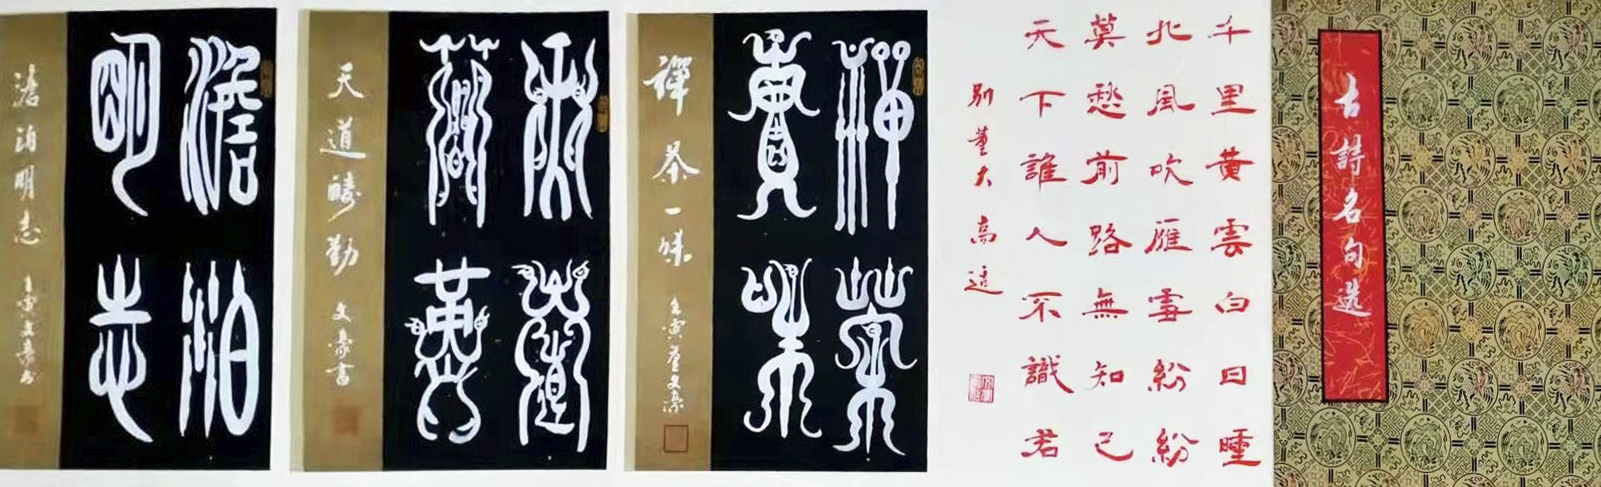 古詩名句选
千里黄雲白日曛
北風吹雁雪紛紛
莫愁前路無知己
天下誰人不識君
别董大 高适
禪茶
味
禪茶一味 壬寅董文豪
天道
天道酬勤 文豪書
澹泊
明志
澹泊明志 壬寅文豪书